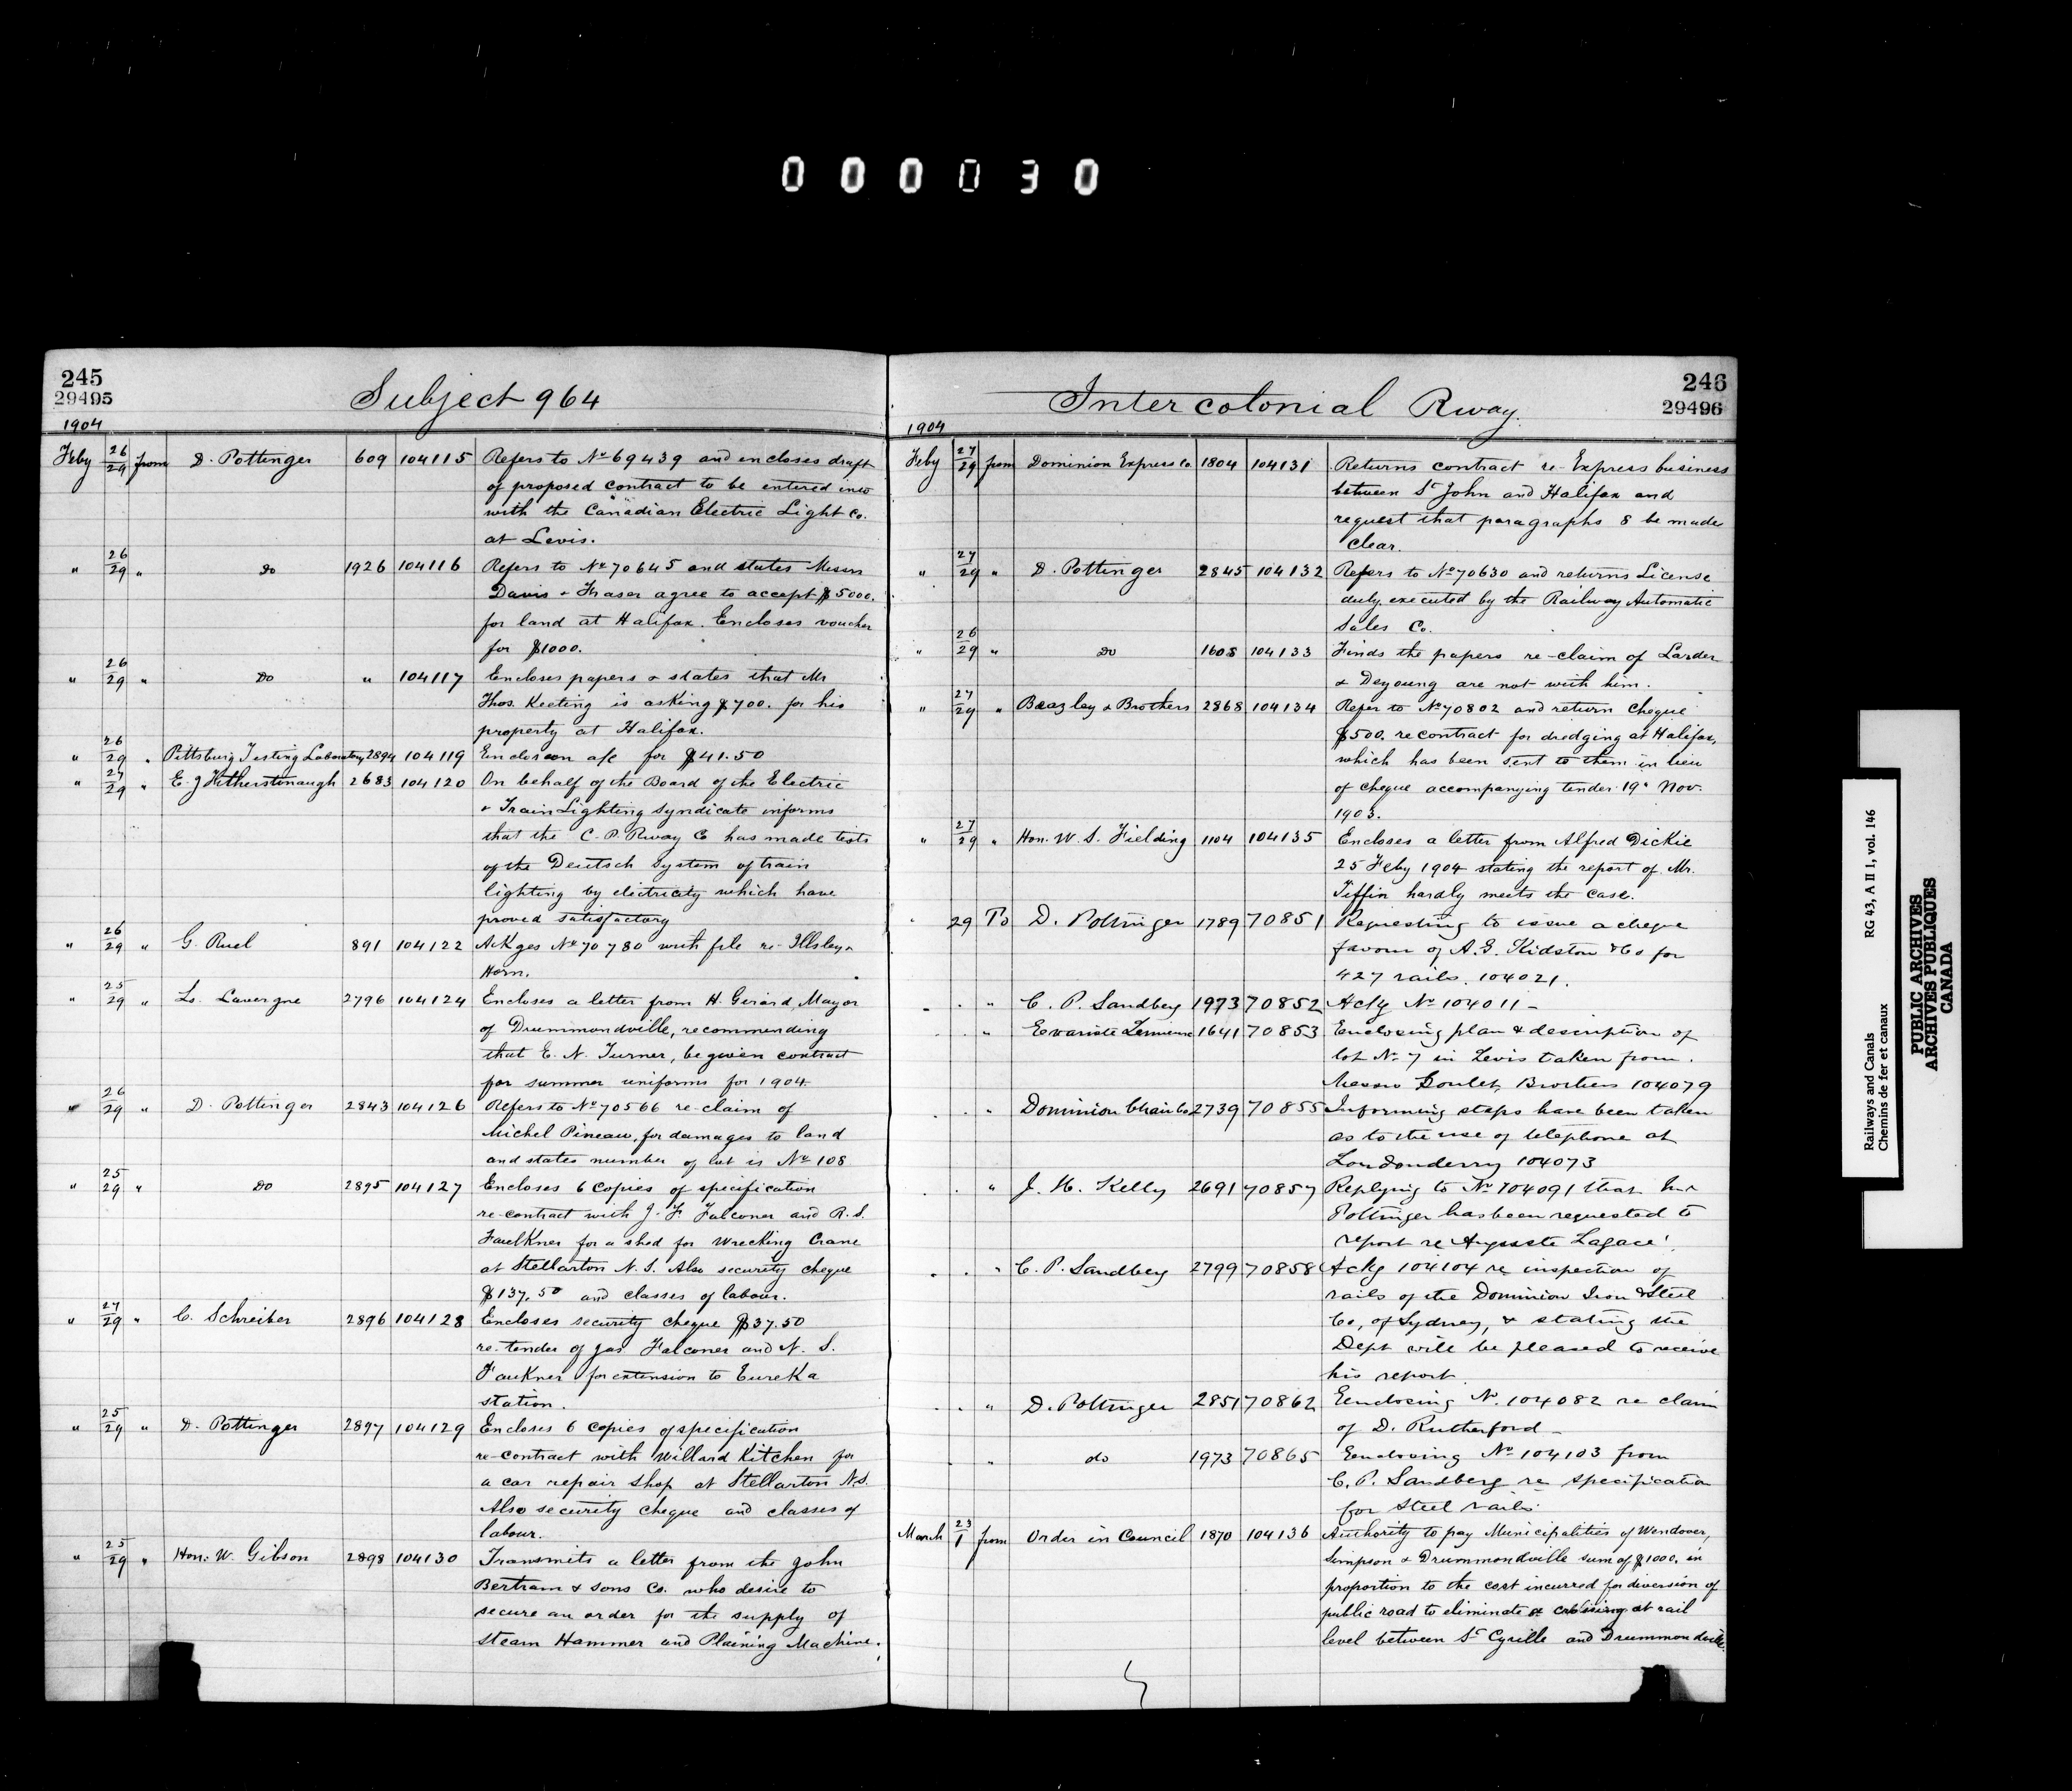 000030
245
29495
Subject 964
1904
Feby 26/29 from D. Pottinger 609 104115 Refers to No 69439 and encloses draft
of proposed contract to be entered into
with the Canadian Electric Light Co.
at Levis.
" 26/29 " Do 1926 104116 Refers to No 70645 and states Messrs
Davis & Fraser agree to accept $5000.
for land at Halifax. Encloses voucher
for $1000.
" 26/29 " Do " 104117 Encloses papers & states that Mr
Thos. Keeting is asking $700. for his
property at Halifax.
" 26/29 " Pittsburg Testing Laboratory 2894 104119 Encloses an a/c for $41.50
" 27/29 " E. J Fetherstonaugh 2683 104120 On behalf of the Board of the Electric
& Train Lighting Syndicate informs
that the C. P. Rway Co has made tests
of the Deutsch System of train
lighting by electricity which have
proved satisfactory
" 26/29 " G. Ruel 891 104122 Ackges No 70780 with file re- Illsley &
Horn.
" 25/29 " Ls. Lavergne 2796 104124 Encloses a letter from H. Girard, Mayor
of Drummondville, recommending
that E. N. Turner, be given contract
for summer uniforms for 1904.
" 26/29 " D. Pottinger 2843 104126 Refers to No 70566 re-claim of
Michel Pineau, for damages to land
and states number of lot is No 108
" 25/29 " Do 2895 104127 Encloses 6 copies of specification
re-contract with J. F. Falconer and R. S.
Faulkner for a shed for Wrecking Crane
at Stellarton N. S. Also security cheque
$137.50 and classes of labour.
" 27/29 " C. Schreiber 2896 104128 Encloses security cheque $37.50
re-tender of Jas. Falconer and N. S.
Faukner for extension to Eureka
station.
" 25/29 " D. Pottinger 2897 104129 Encloses 6 copies of specification
re-contract with Willard Kitchen for
a car repair shop at Stellarton N.S.
Also security cheque and classes of
labour.
" 25/29 " Hon: W. Gibson 2898 104130 Transmits a letter from the John
Bertram & Sons Co. who desire to
secure an order for the supply of
Steam Hammer and Plaining Machine.
246
29496
Intercolonial Rway.
1904
Feby 27/29 from Dominion Express Co. 1804 104131 Returns contract re- Express business
between St John and Halifax and
request that paragraphs 8 be made
clear.
" 27/29 " D. Pottinger 2845 104132 Refers to No 70630 and returns License
duly executed by the Railway Automatic
Sales Co.
" 26/29 " Do 1608 104133 Finds the papers re-claim of Larder
& Deyoung are not with him.
" 27/29 " Beazley & Brothers 2868 104134 Refer to No 70802 and return Cheque
$500. re contract for dredging at Halifax,
which has been sent to them in lieu
of cheque accompanying tender 19" Nov.
1903.
" 27/29 " Hon. W. S. Fielding 1104 104135 Encloses a letter from Alfred Dickie
25 Feby 1904 stating the report of Mr.
Tiffin hardly meets the case.
" 29 To D. Pottinger 1789 70851 Requesting to issue a cheque
favour of A. G. Kidston & Co for
427 rails. 104021.
" " C. P. Sandberg 1973 70852 Ackg No 104011 -
" Evariste Lemieux 1641 70853 Enclosing plan & description of
lot No 7 in Levis taken from
Messrs Goulet Brothers 104079
" " Dominion Chair Co 2739 70855 Informing steps have been taken
as to the use of telephone at
Londonderry 104073
" " J. H. Kelly 2691 70857 Replying to No 104091 that Mr
Pottinger has been requested to
report re Auguste Lagacé.
" " C. P. Sandberg 2799 70858 Ackg 104104 re inspection of
rails of the Dominion Iron & Steel
Co, of Sydney, & stating the
Dept will be pleased to receive
his report
" " D. Pottinger 2851 70862 Enclosing No. 104082 re claim
of D. Rutherford -
" " do 1973 70865 Enclosing No 104103 from
C. P. Sandberg re specification
for steel rails.
March 23/1 from Order in Council 1870 104136 Authority to pay Municipalities of Wendover,
Simpson & Drummondville sum of $1000. in
proportion to the cost incurred for diversion of
public road to eliminate a crossing at rail
level between St Cyrille and Drummondville.
Railways and Canals RG 43, A II 1, vol. 146
Chemins de fer et canaux
PUBLIC ARCHIVES
ARCHIVES PUBLIQUES
CANADA